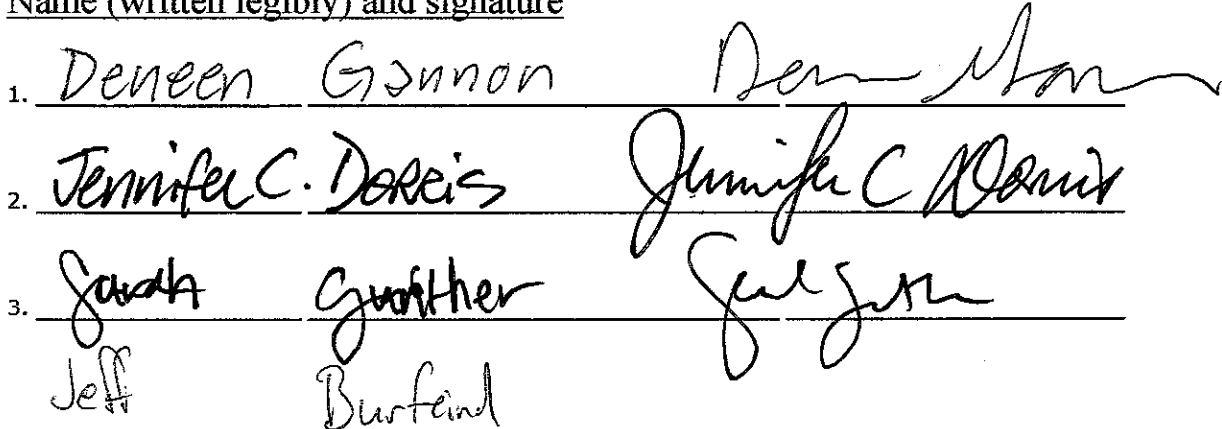 Name (written legibly) and signature
1. Deneen Gannon
2. Jennifer C. Dorris Jennifer C Dorris
3. Sarah
Jeff Burfeind